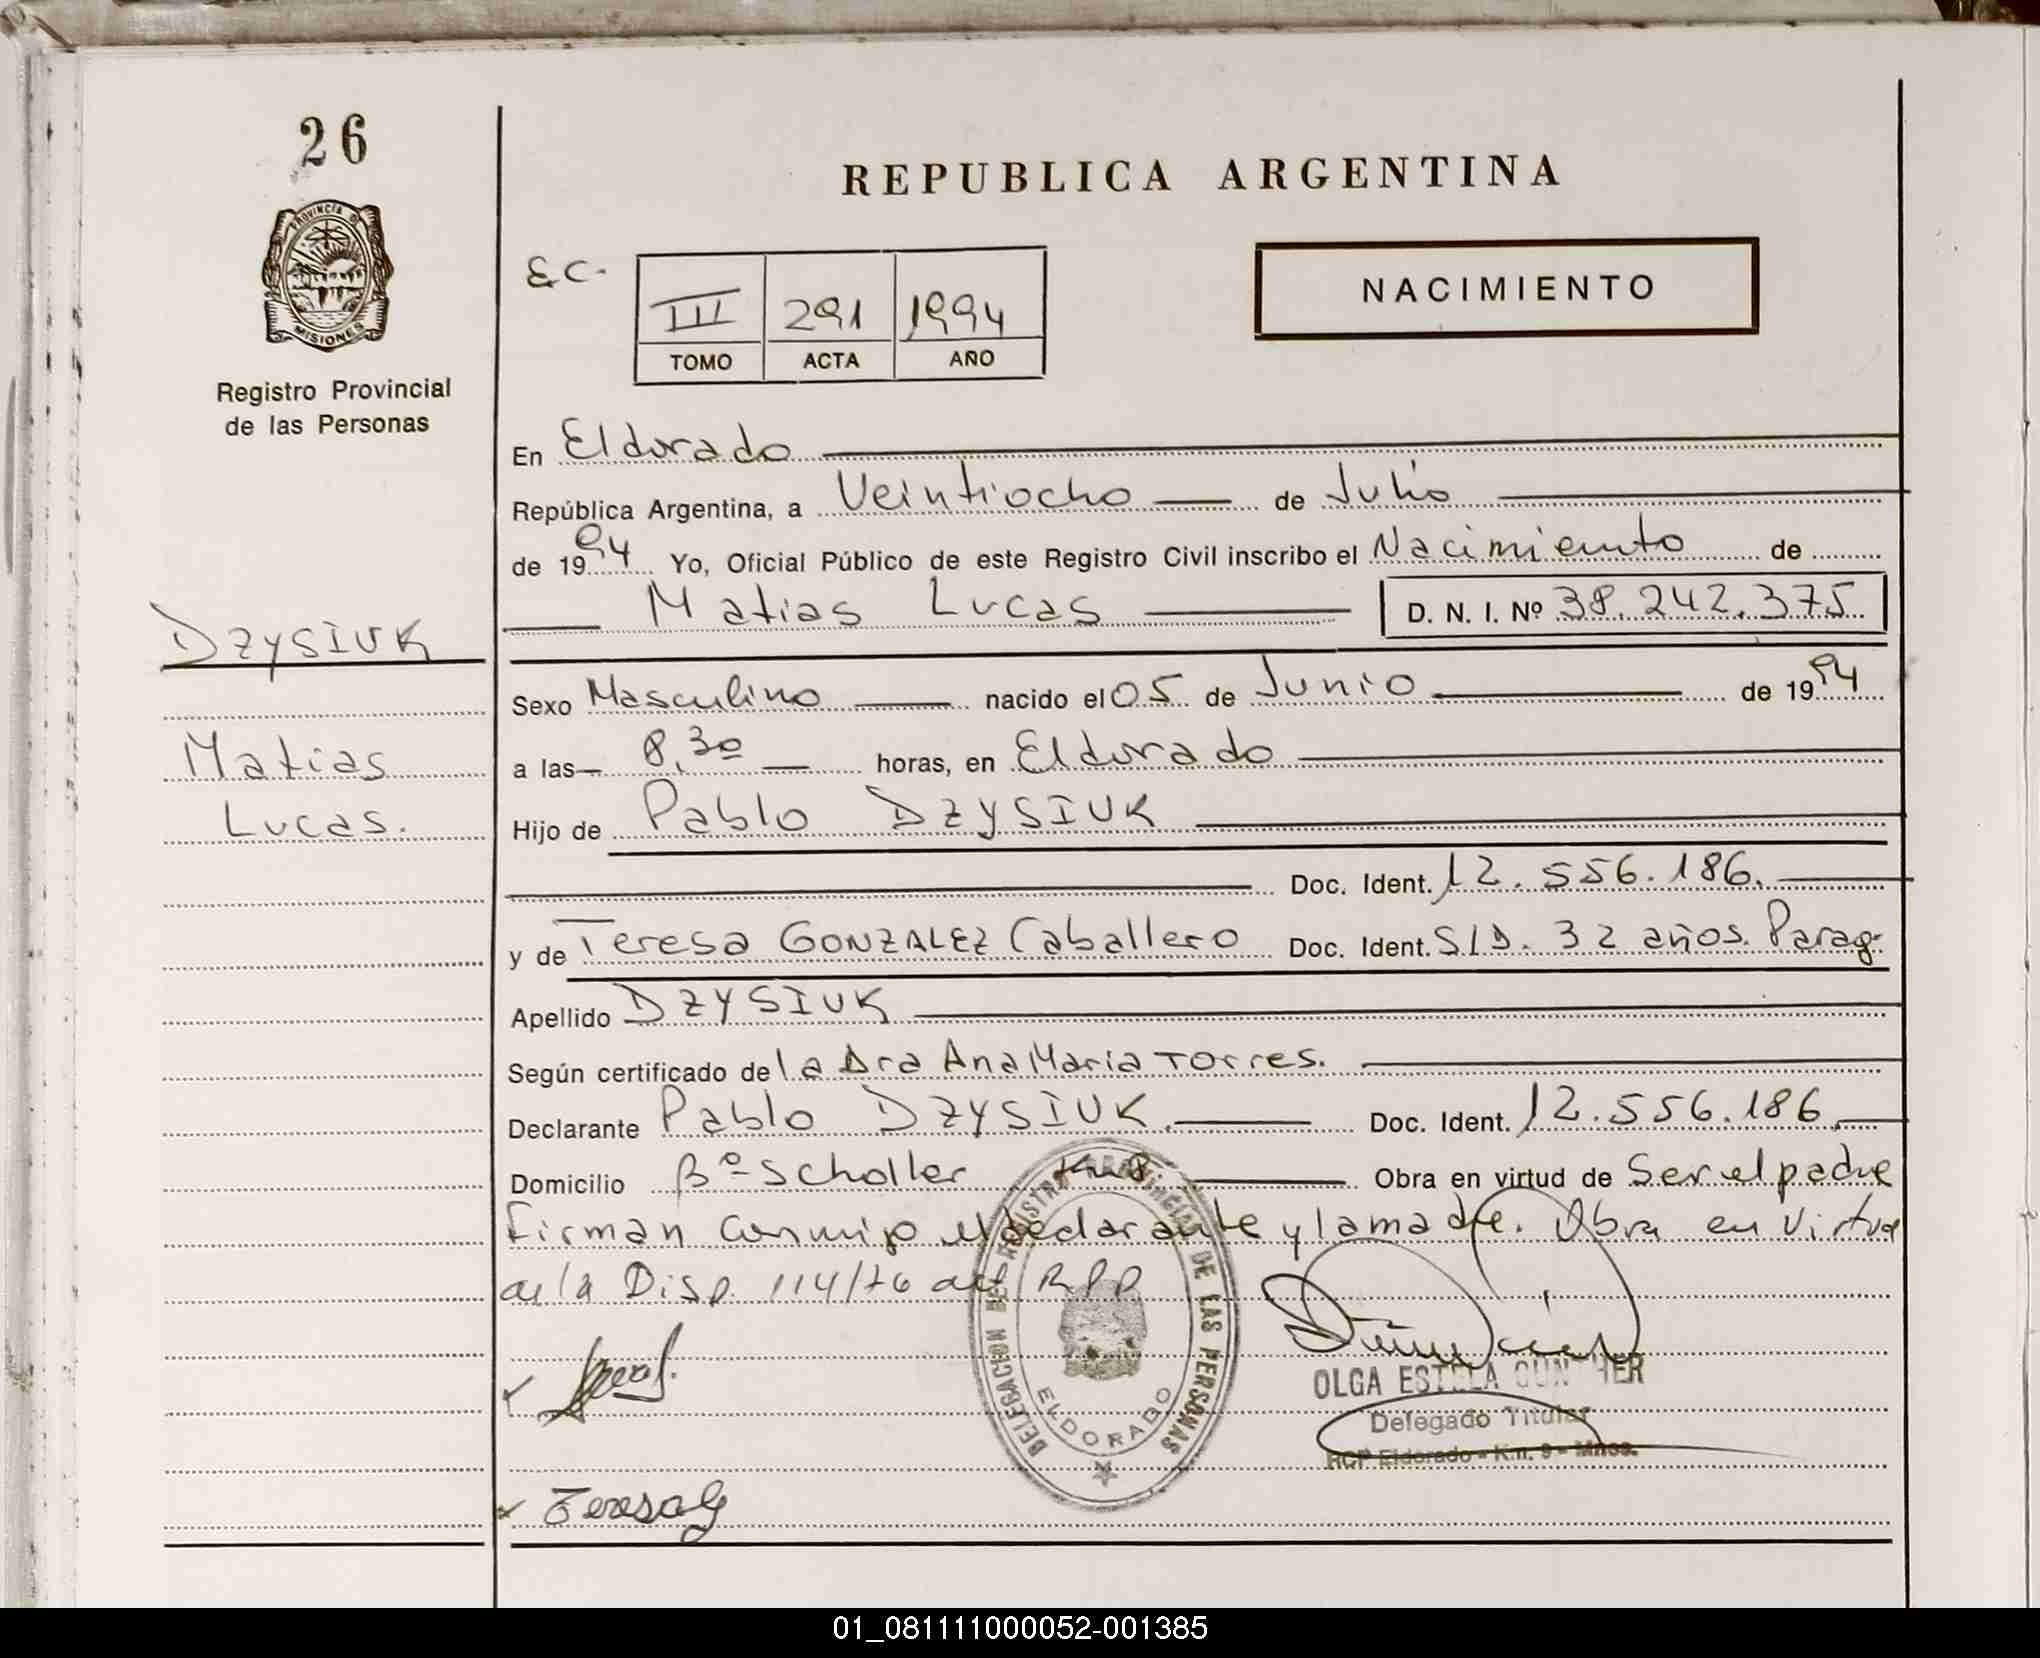 26
PROVINCIA DE
MISIONES
Registro Provincial
de las Personas
DZYSIUK
Matias
Lucas.
REPUBLICA ARGENTINA
E.C.
III 291 1994
TOMO ACTA AÑO
NACIMIENTO
En Eldorado
República Argentina, a Veintiocho de Julio
de 1994 Yo, Oficial Público de este Registro Civil inscribo el Nacimiento de
Matias Lucas D. N. I. Nº 38.242.375
Sexo Masculino nacido el 05 de Junio de 1994
a las 8,30 horas, en Eldorado
Hijo de Pablo DZYSIUK
Doc. Ident. 12.556.186.
y de Teresa GONZALEZ Caballero Doc. Ident. S/D. 32 años. Parag.
Apellido DZYSIUK
Según certificado de la Dra Ana Maria Torres.
Declarante Pablo DZYSIUK. Doc. Ident. 12.556.186
Domicilio Bº Scholler Km 8 Obra en virtud de Ser el padre
firman conmigo el declarante y la madre. Obra en virtud
de la Disp. 114/76 del RPP
REGISTRO PROVINCIAL DE LAS PERSONAS
DELEGACION
ELDORADO
OLGA ESTELA GUNTHER
Delegado Titular
RCP Eldorado - Km. 9 - Mnes.
Teresa G
01_081111000052-001385